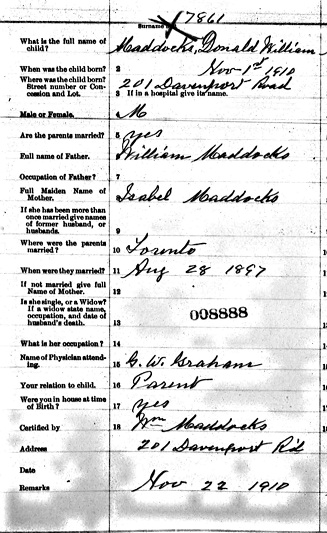 17861
Surname
What is the full name of child? 1 Maddocks, Donald William
When was the child born? 2 Nov 1st 1910
Where was the child born? Street number or Concession and Lot. 3 If in a hospital give its name. 201 Davenport Road
Male or Female. 4 M
Are the parents married? 5 yes
Full name of Father. 6 William Maddocks
Occupation of Father? 7
Full Maiden Name of Mother. 8 Isabel Maddocks
If she has been more than once married give names of former husband, or husbands. 9
Where were the parents married? 10 Toronto
When were they married? 11 Aug 28 1897
If not married give full Name of Mother. 12
Is she single, or a Widow? If a widow state name, occupation, and date of husband's death. 13
008888
What is her occupation? 14
Name of Physician attending. 15 G. W. Graham
Your relation to child. 16 Parent
Were you in house at time of Birth? 17 yes
Certified by 18 Wm Maddocks
Address 201 Davenport Rd
Date
Remarks Nov 22 1910